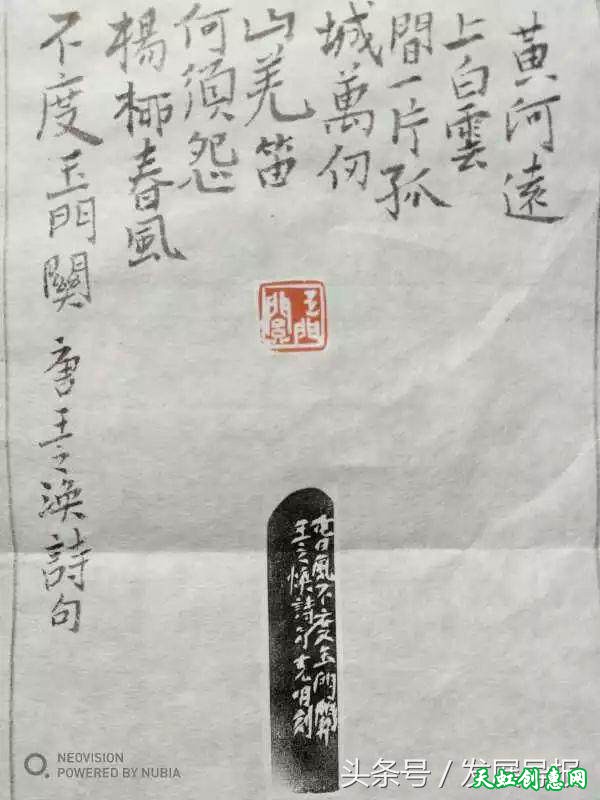 黄河遠
上白雲
間一片孤
城萬仞
山羌笛
何須怨
楊栁春風
不度玉門関 唐王之渙詩句
玉門
関
春風不度玉門關
王之煥詩句
NEOVISION
POWERED BY NUBIA
头条号/发展早报
天虹创意网